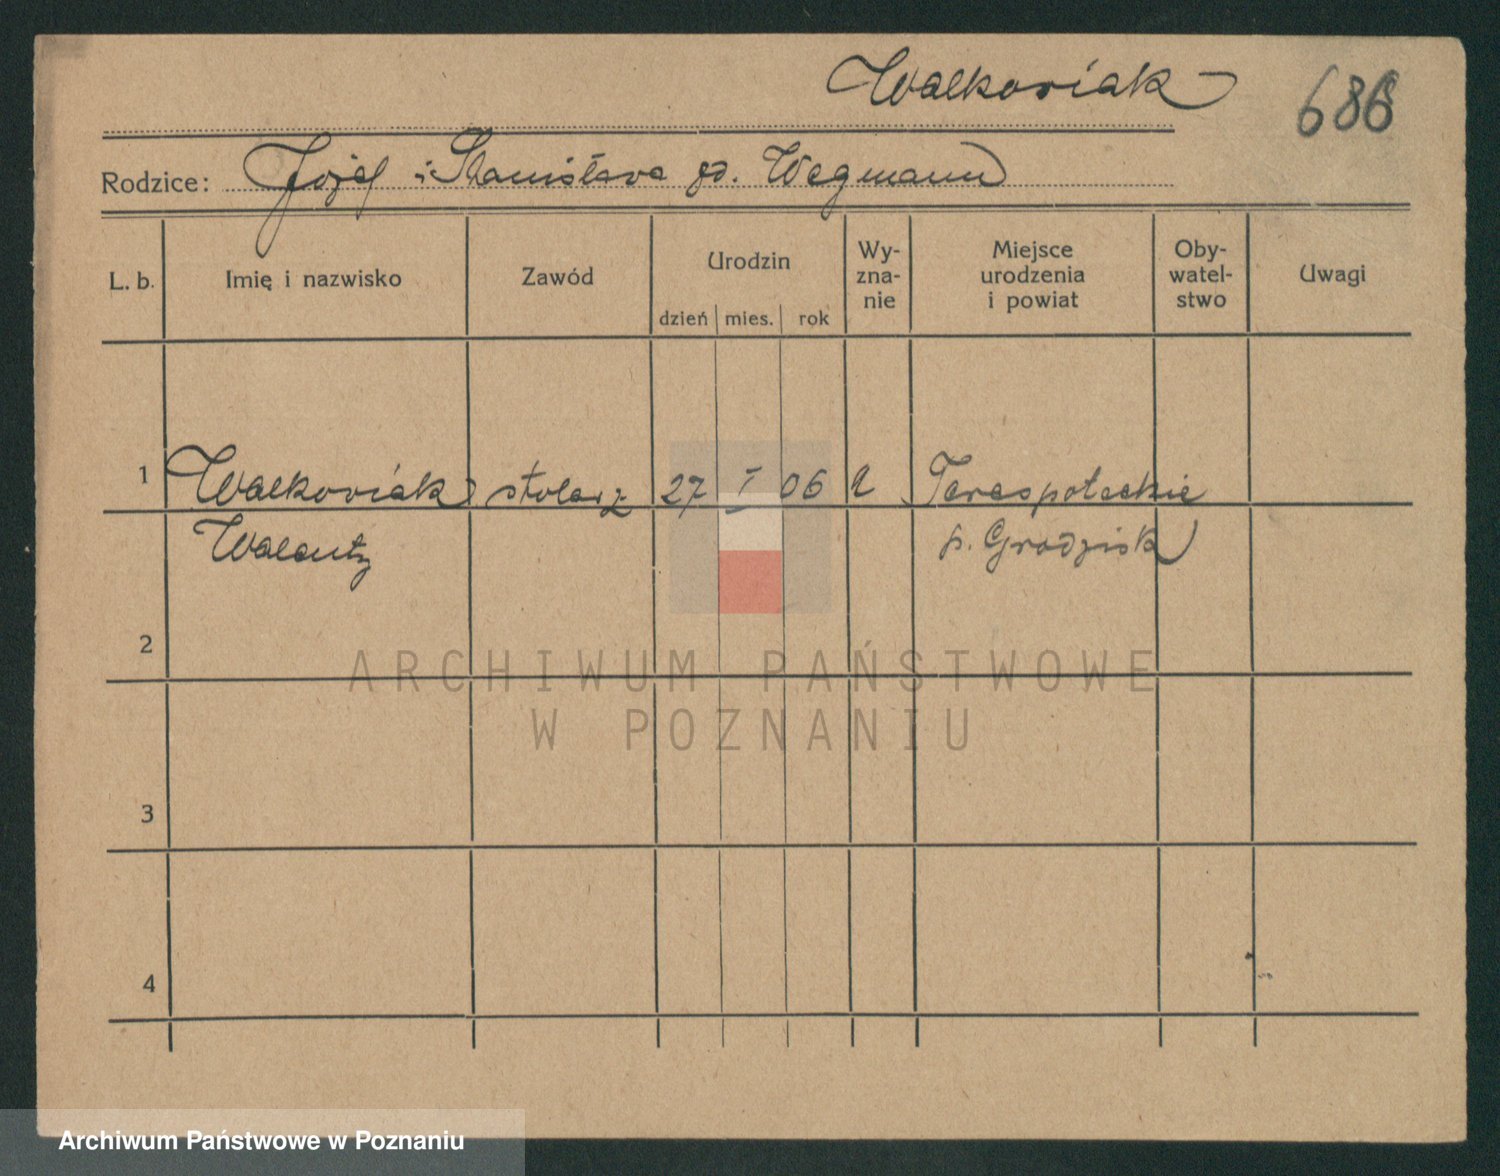 Walkowiak
686
Rodzice: Józef i Stanisława zd. Wegmann
L. b.
Imię i nazwisko
Zawód
Urodzin
dzień mies. rok
Wy-
zna-
nie
Miejsce
urodzenia
i powiat
Oby-
watel-
stwo
Uwagi
1 Walkowiak stolarz 27 I 06
Walenty p. Grodzisk
2
ARCHIWUM PAŃSTWOWE
W POZNANIU
3
4
Archiwum Państwowe w Poznaniu